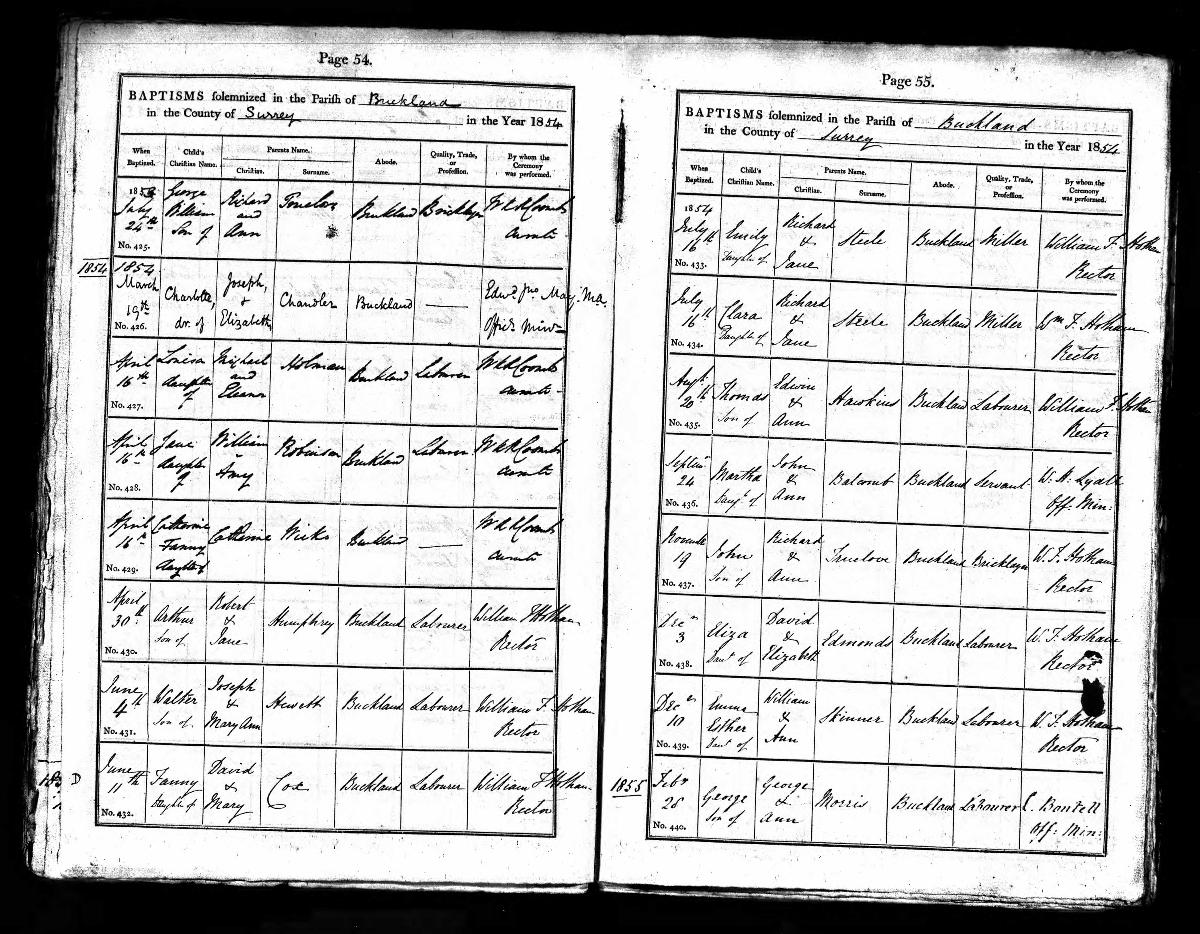 Page 54.
BAPTISMS solemnized in the Parish of Buckland
in the County of Surrey in the Year 1854
When Baptized. Child's Christian Name. Parents Name. Christian. Surname. Abode. Quality, Trade, or Profession. By whom the Ceremony was performed.
July 24th George William Son of Richard and Ann Buckland
No. 425.
1854
1854 March 19th Charlotte, dr. of Joseph, & Elizabeth Chandler Buckland —
No. 426.
April 16th Louisa daughter of Michael and Eleanor Holman Buckland Labourer
No. 427.
April 16th Jane daughter of William Amy Robinson Buckland Labourer
No. 428.
April 16th Catherine Fanny daughter of Catherine Wicks Buckland —
No. 429.
April 30th Arthur Son of Robert & Jane Humphrey Buckland Labourer William F Hotham Rector
No. 430.
June 4th Walter Son of Joseph & Mary Ann Hewett Buckland Labourer William F. Hotham Rector
No. 431.
June 11th Fanny Daughter of David & Mary Cox Buckland Labourer William F Hotham Rector
No. 432.
Page 55.
BAPTISMS solemnized in the Parish of Buckland
in the County of Surrey in the Year 1854
When Baptized. Child's Christian Name. Parents Name. Christian. Surname. Abode. Quality, Trade, or Profession. By whom the Ceremony was performed.
1854 July 16th Emily Daughter of Richard & Jane Steele Buckland Miller William F. Hotham Rector
No. 433.
July 16th Clara Daughter of Richard & Jane Steele Buckland Miller Wm F. Hotham Rector
No. 434.
Augst 20th Thomas Son of Edwin & Ann Hawkins Buckland Labourer William F. Hotham Rector
No. 435.
24 Martha Daugr of John & Ann Balcomb Buckland Servant W. H. Lyall Off: Min:
No. 436.
19 John Son of Richard & Ann Truelove Buckland W. F. Hotham Rector
No. 437.
Decr 3 Eliza Daut of David & Elizabeth Edmonds Buckland Labourer W. F. Hotham Rector
No. 438.
Decr 10 Emma Esther Daut of William & Ann Skinner Buckland Labourer W. F. Hotham Rector
No. 439.
1855
Feby 28 George Son of George & Ann Morris Buckland Labourer Off: Min:
No. 440.